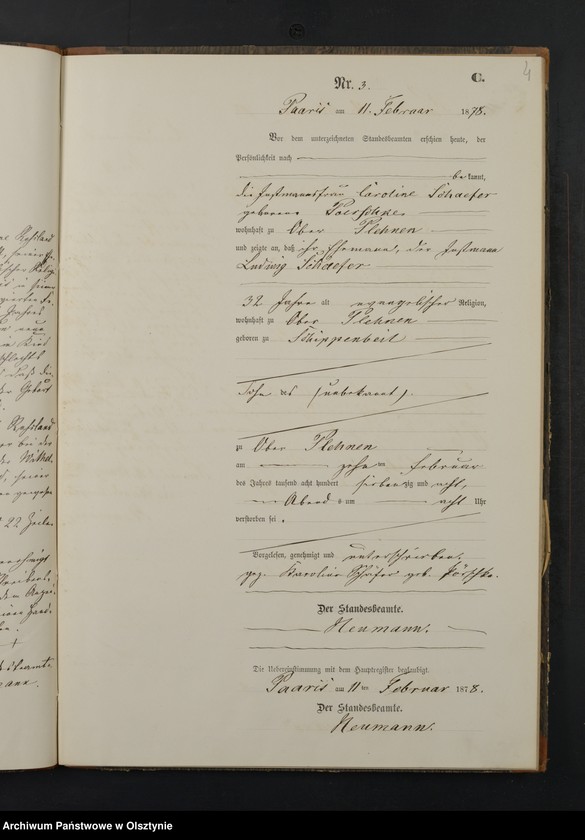 4
C.
Nr. 3.
Paaris am 11. Februar 1878.
Vor dem unterzeichneten Standesbeamten erschien heute, der
Persönlichkeit nach
bekannt,
die Instmannsfrau Caroline Schaefer
geborene Poerschke
wohnhaft zu Ober Plehnen
und zeigte an, daß ihr Ehemann, der Instmann
Ludwig Schaefer
32 Jahre alt evangelischer Religion,
wohnhaft zu Ober Plehnen
geboren zu Schippenbeil
Sohn des (unbekannt).
zu Ober Plehnen
am zehn ten Februar
des Jahres tausend acht hundert siebenzig und acht,
Abend s um acht Uhr
verstorben sei.
Vorgelesen, genehmigt und unterschrieben.
gez. Karoline Schäfer geb. Pörschke.
Der Standesbeamte.
Neumann.
Die Uebereinstimmung mit dem Hauptregister beglaubigt.
Paaris am 11 ten Februar 1878.
Der Standesbeamte.
Neumann.
Archiwum Państwowe w Olsztynie